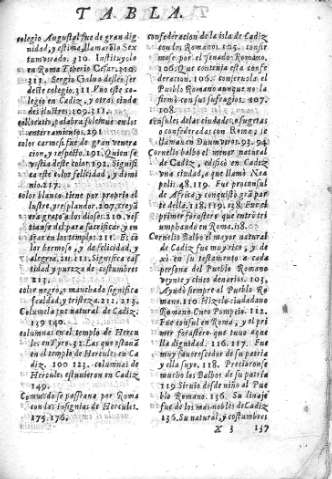 TABLA.
colegio Augustal fue de gran dig
nidad, y estima, llamarõlo Sex
tumvirado. 310. Instituyolo
en Roma Tiberio Cesar. 310.
311. Sergio Galvo deste ser
deste colegio. 311. Vuo este co
legio en Cadiz, y otras ciuda
des ilustres. 309. 311.
enterramientos. 291
color carmesi fue de gran venera
cion, y respeto. 191. Quien se
vestia deste color. 191. Signifi
ca este color felicidad, y domi
nio. 217.
color blanco tiene por proprio el
lustre, resplandor. 207. creya
era grato a los dioses. 210. vest
tianse del para sacrificar, y en
trar en los templos. 211. Es co
lor hermoso, y de felicidad, y
alegria. 211. 212. Significa cas
tidad y pureza de costumbres
213.
color negro, o manchado significa
fealdad, y tristeza. 212. 213.
Columela fue natural de Cadiz.
139 140.
columnas en el templo de Hercu
les en Tyro. 32. Las que estauã
en el templo de Hercules en Ca
diz. 100 123. columnas de
Hercules estuuieron en Cadiz
149.
Comundose passaua por Roma
con las insignias de Hercules.
175. 176.
confederacion de la isla de Cadiz
con los Romanos. 105. confir
mose por el Senado Romano.
106. Que contenia esta confe
deracion. 106. conseruola el
Pueblo Romano aunque no la
firmò con sus sufragios. 107.
108.
Consules de las ciudades sugetas
o confederadas con Roma, se
llamauan Duumviros. 93. 94
Cornelio Balbo el menor natural
de Cadiz, edificò en Cadiz
vna ciudad, a que llamò Nea
polis. 48. 119. Fue proconsul
de Africa, y conquistò grã par
te della. 118. 119. Fue el
primer forastero que entrò tri
umphando en Roma. 118.
Cornelio Balbo el mayor natural
de Cadiz fue muy rico, y de
xò en su testamento a cada
persona del Pueblo Romano
veynte y cinco denarios. 103.
Ayudò siempre al Pueblo Ro
mano. 110. Hizolo ciudadano
Romano Cneo Pompeio. 112.
Fue consul en Roma, y el pri
mer forastero que tuuo aque
lla dignidad. 116. 117. Fue
muy fauorecedor de su patria
y ella suya. 118. Preciaronse
mucho los Balbos de su patria
119. Siruio desde niño al Pue
blo Romano. 136. Su linaje
fue de los mas nobles de Cadiz
136. Su natural, y costumbres
X 3 137